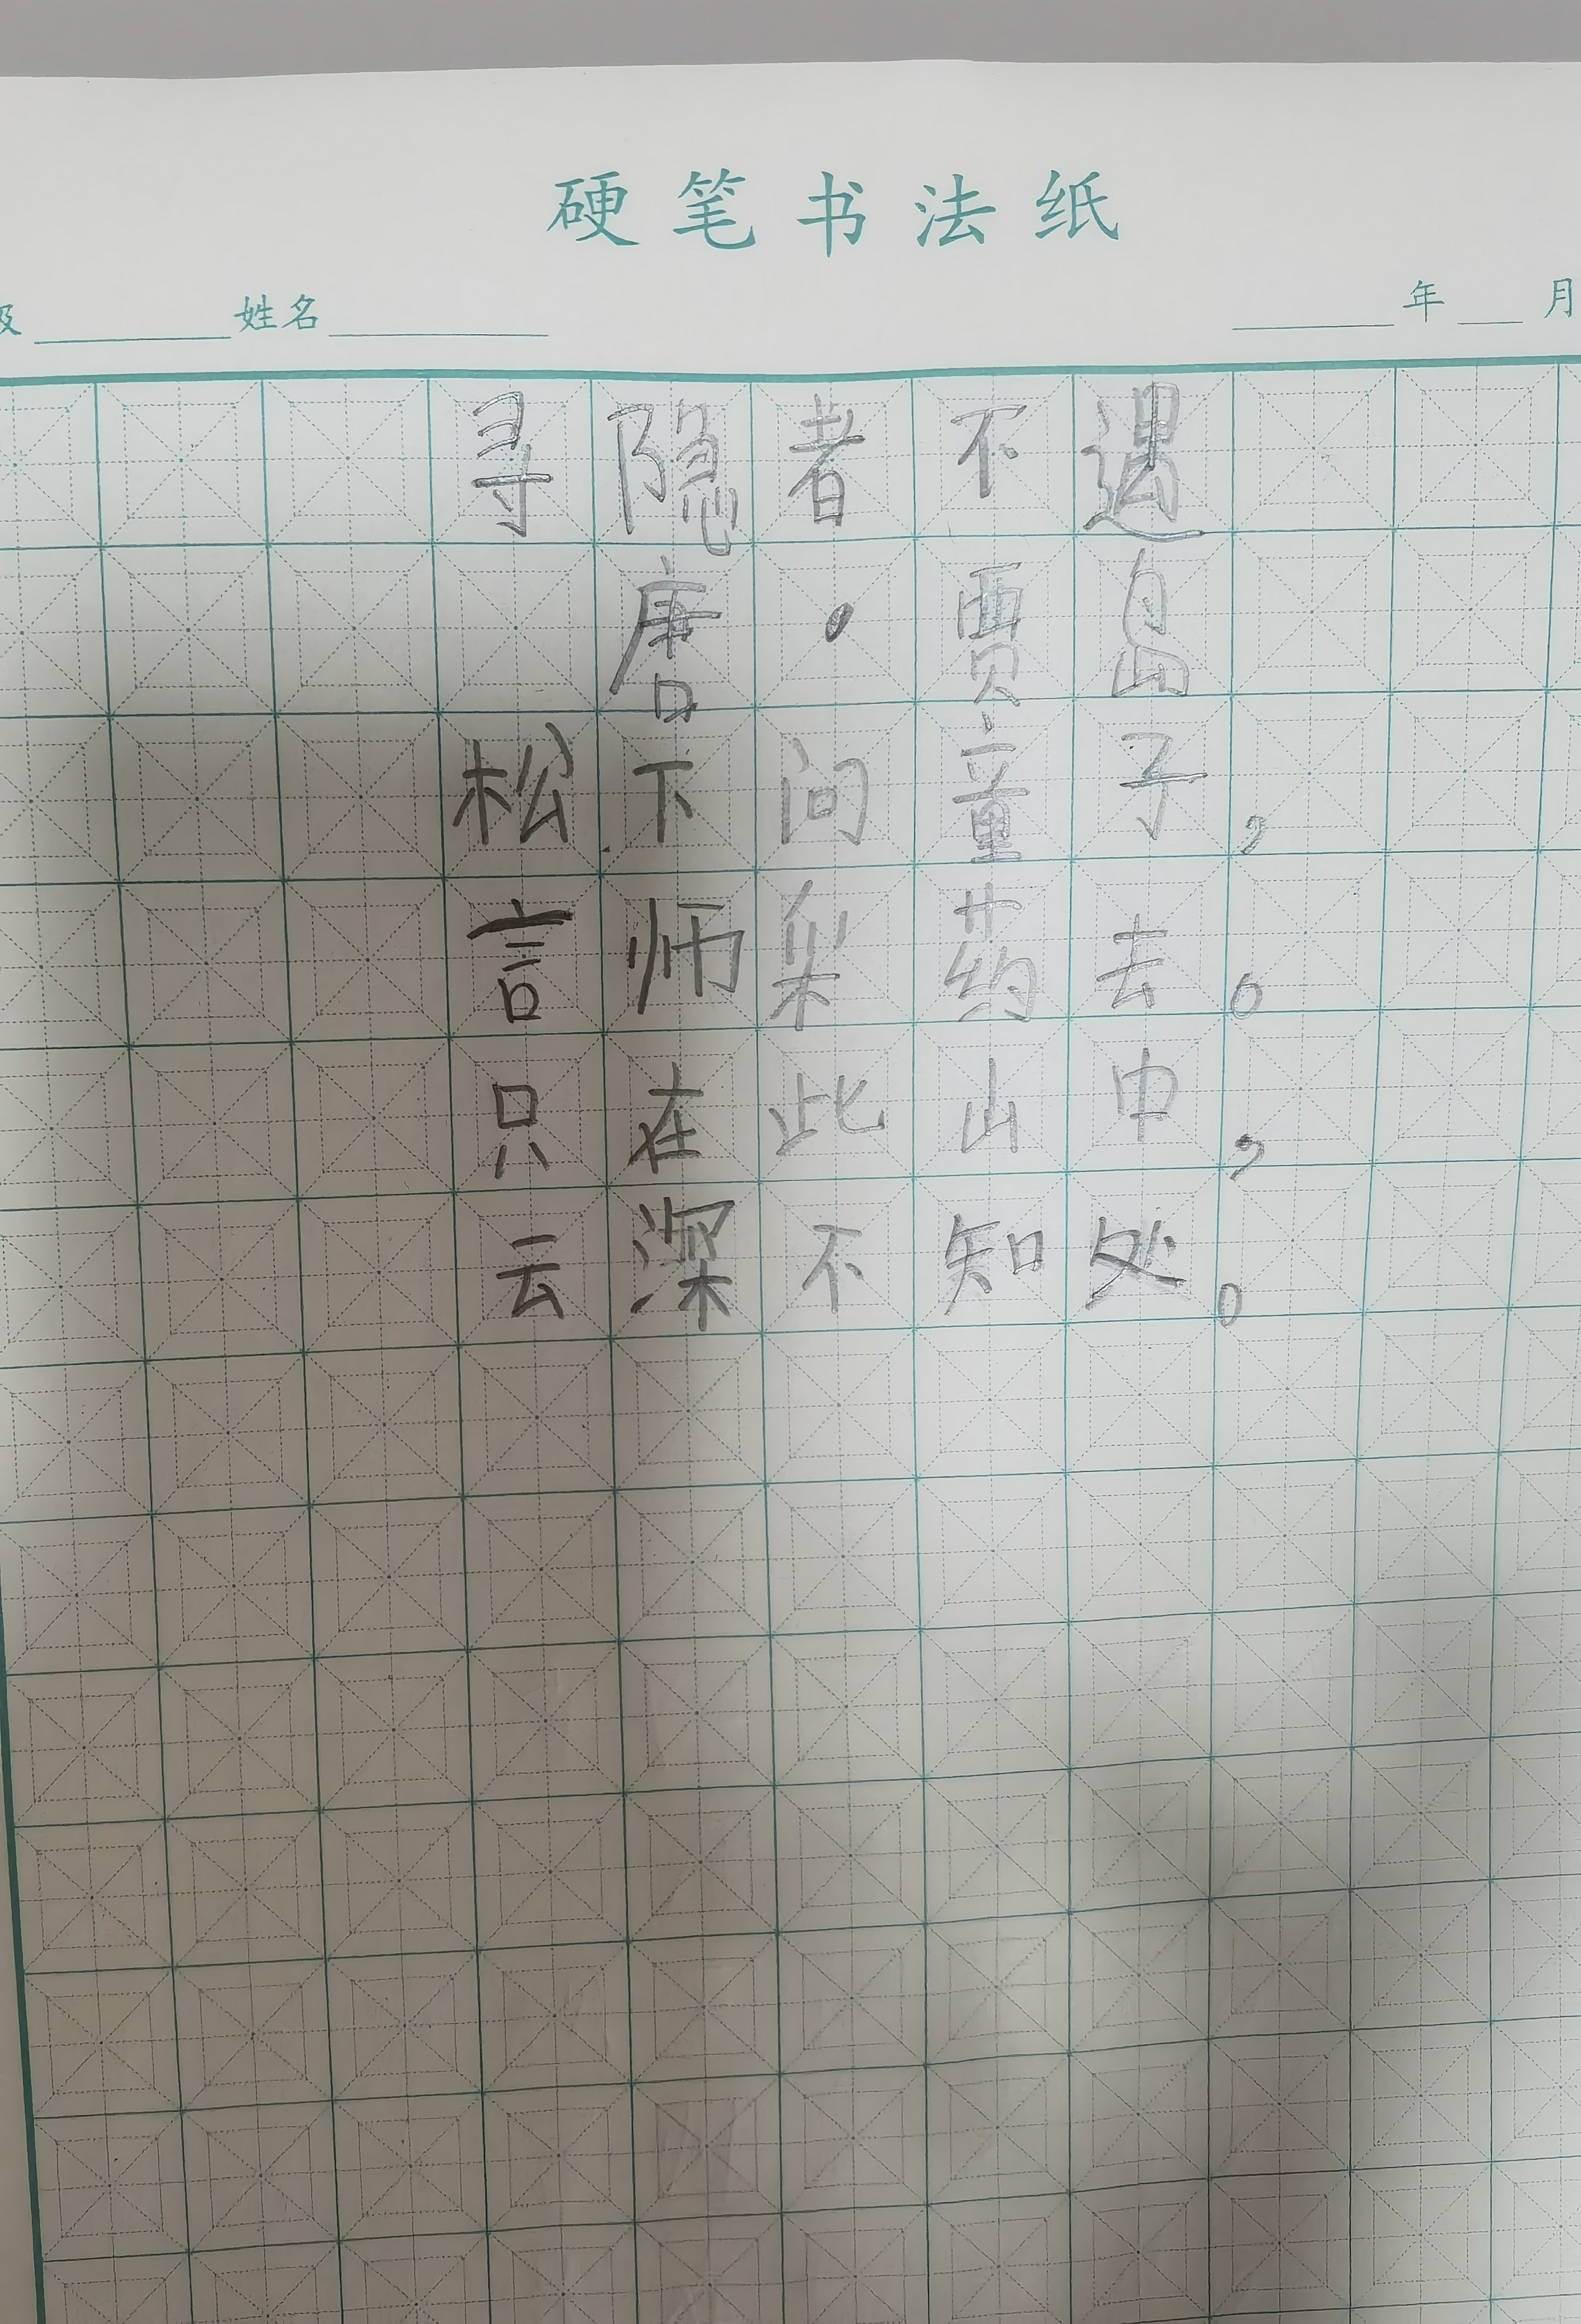 硬笔书法纸
级 姓名 年 月
寻隐者不遇
唐·贾岛
松下问童子，
言师采药去。
只在此山中，
云深不知处。